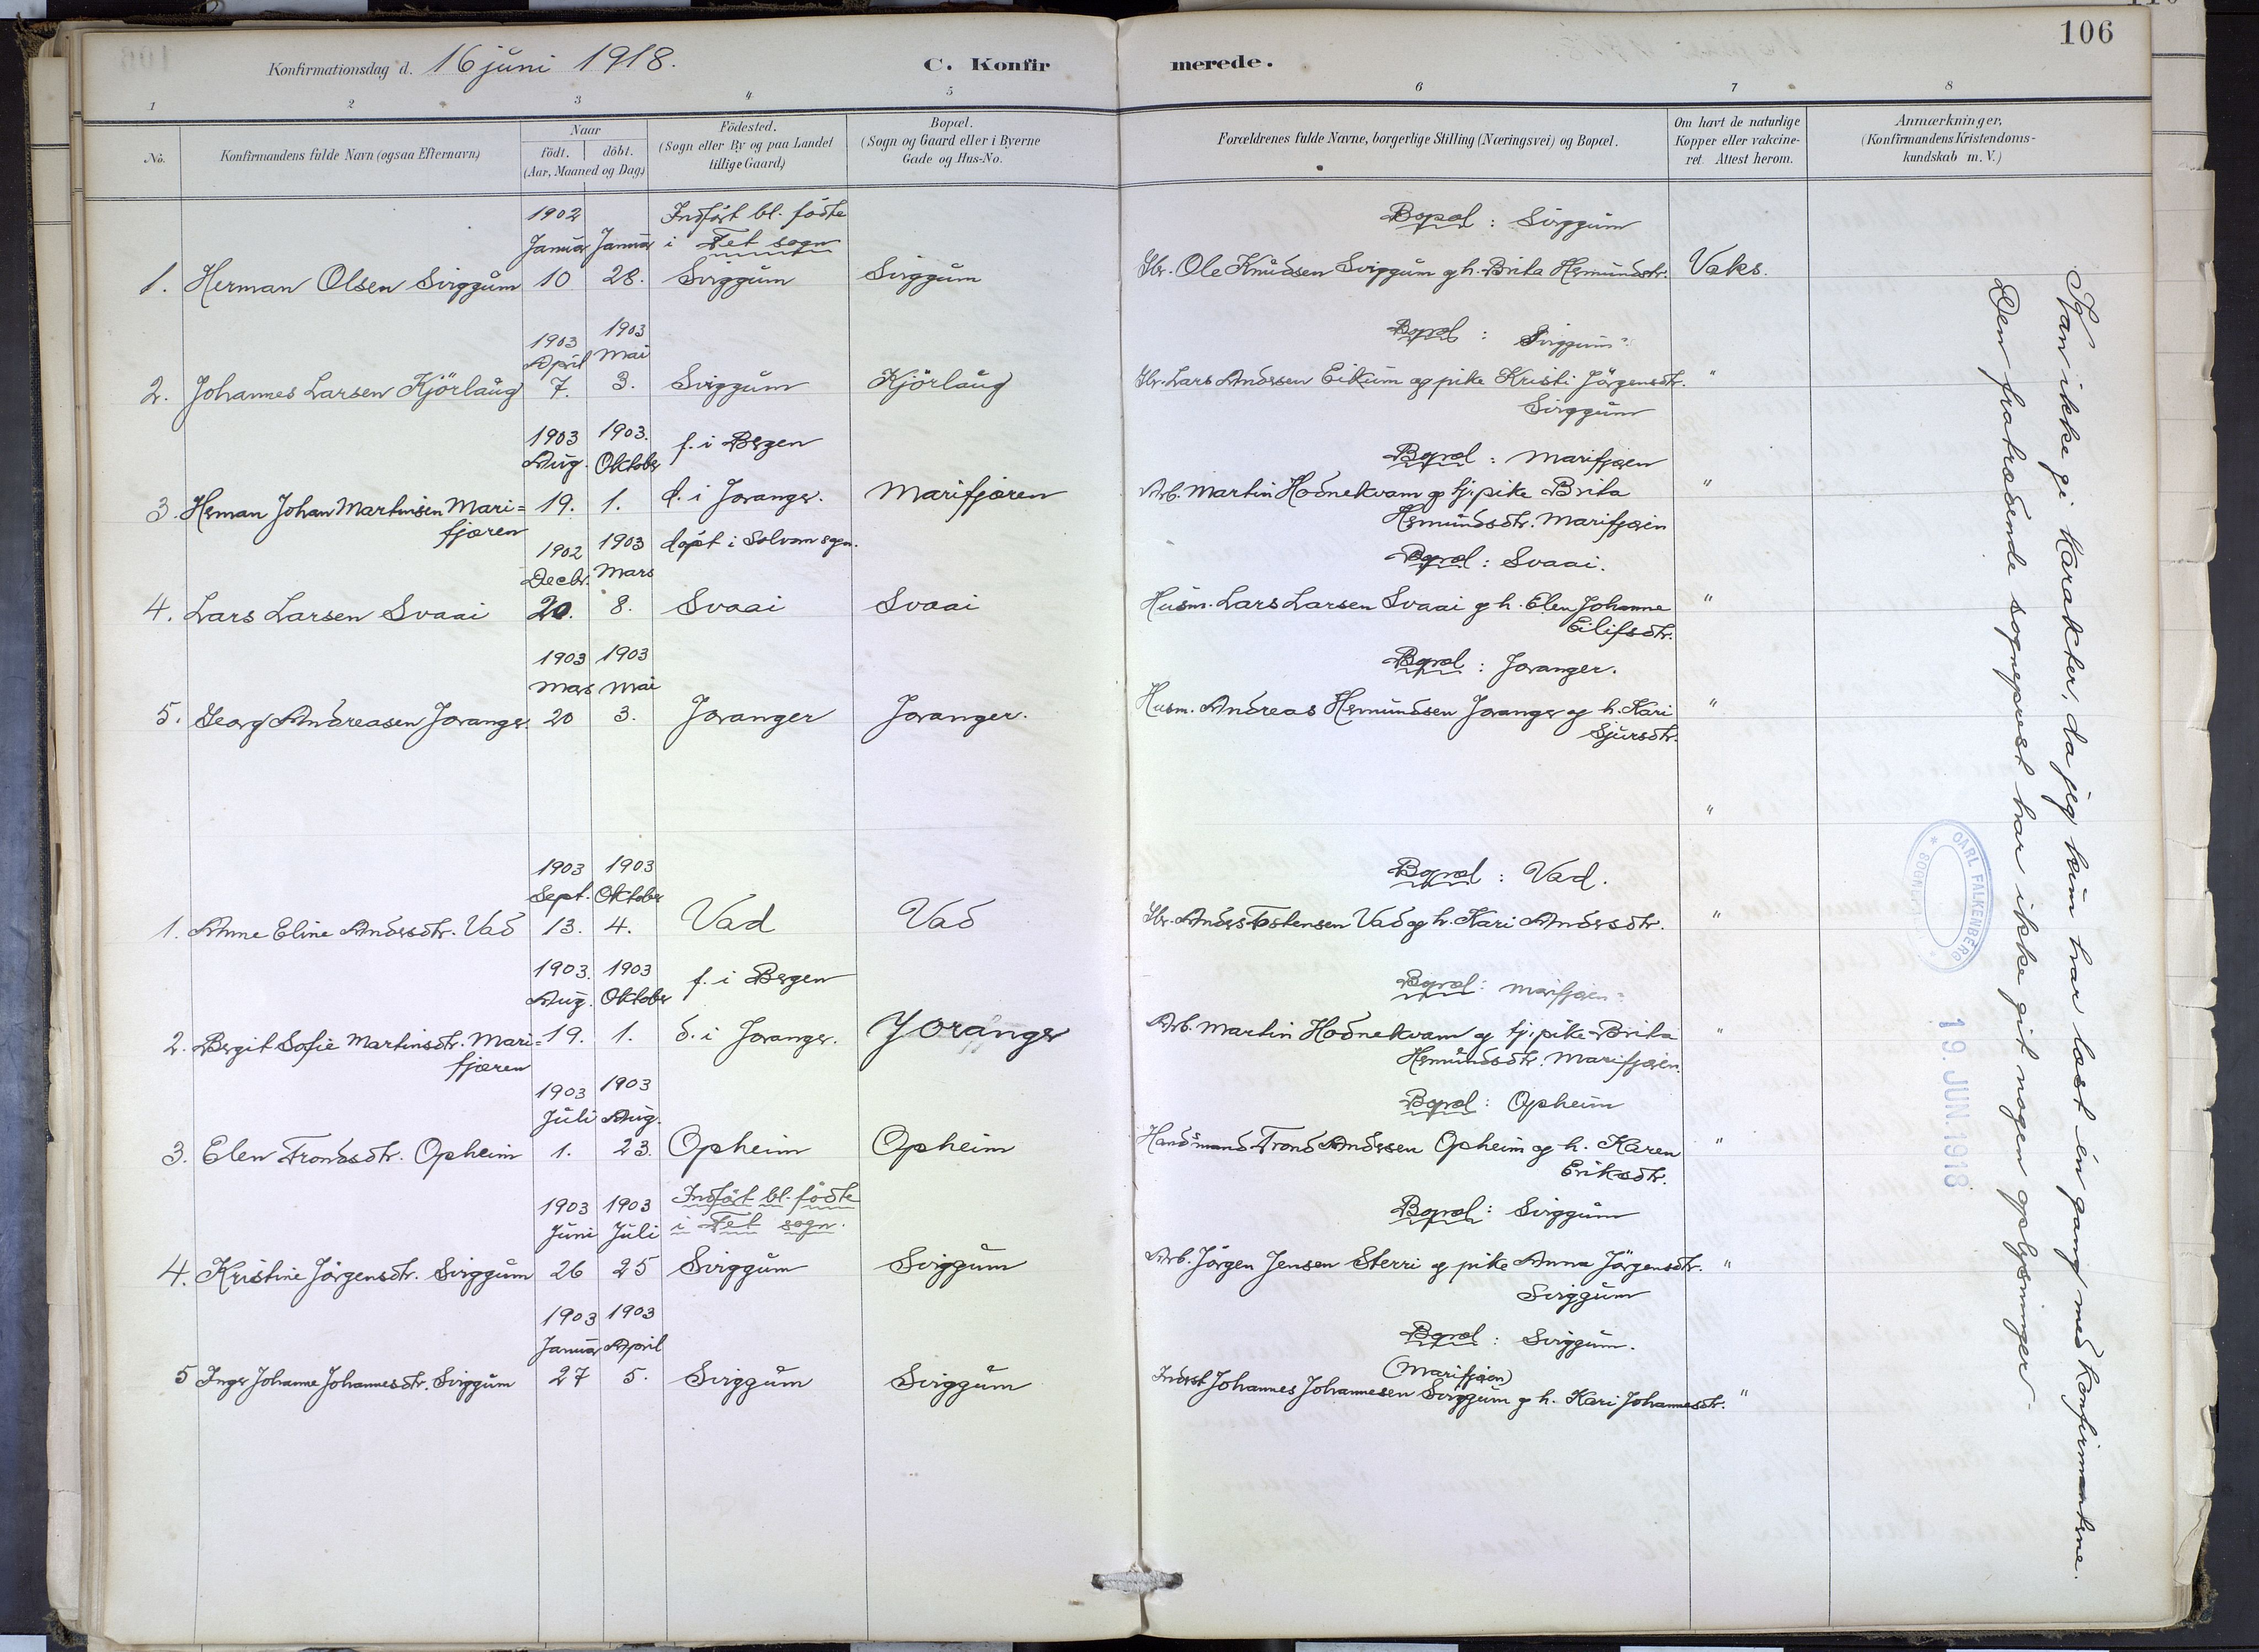 106
Konfirmationsdag d. 16 juni 1918. C. Konfirmerede.
1 2 3 4 5 6 7 8
No.
Konfirmandens fulde Navn (ogsaa Efternavn)
Naar
födt. döbt.
(Aar, Maaned og Dag)
Födested.
(Sogn eller By og paa Landet
tillige Gaard)
Bopæl.
(Sogn og Gaard eller i Byerne
Gade og Hus-No.
Forældrenes fulde Navne, borgerlige Stilling (Næringsvei) og Bopæl.
Om havt de naturlige
Kopper eller vakcine-
ret. Attest herom.
Anmærkninger,
(Konfirmandens Kristendoms-
kundskab m. V.)
1902 Indført bl. fødte Bopæl : Svigg̊um
Januar Januar i Fet sogn
1. Herman Olsen Sviggum 10 28. Sviggum Sviggum Gbr. Ole Knudsen Sviggum og h. Brita Hermundsdtr. Vaks.
1903 1903 Bopæl : Sviggum
April Mai
2. Johannes Larsen Kjörlaug 7. 3. Sviggum Kjörlaug Gbr. Lars Andersen Eikum og pike Kristi Jörgensdtr. "
Sviggum
1903 1903. f. i Bergen Bopæl : Marifjæren
Aug. Oktober
3. Herman Johan Martinsen Mari= 19. 1. d. i Joranger. Marifjæren Arb. Martin Hodnekvam og tj. pike Brita "
fjæren Hermundsdtr. Marifjæren
1902 1903 døpt i Solvorn sogn. Bopæl : Svaai.
Decbr. Mars
4. Lars Larsen Svaai 20. 8. Svaai Svaai Husm. Lars Larsen Svaai og h. Elen Johanne "
Eilifsdtr.
1903 1903 Bopæl : Joranger.
Mars Mai
5. Georg Andreasen Joranger 20 3. Joranger Joranger. Husm. Andreas Hermundsen Joranger og h. Kari "
Sjursdtr.
"
1903 1903 Bopæl : Vad.
Sept. Oktober
1. Anne Eline Andersdtr. Vad 13. 4. Vad Vad Gbr. Anders Tostensen Vad og h. Kari Andersdtr. "
1903. 1903 f. i Bergen Bopæl : Marifjæren
Aug. Oktober
2. Bergit Sofie Martinsdtr. Mari= 19. 1. d. i Joranger. Joranger Arb. Martin Hodnekvam og tj. pike Brita "
fjæren Hermundsdtr. Marifjæren.
1903 1903 Bopæl : Opheim
Juli Aug.
3. Elen Trondsdtr. Opheim 1. 23. Opheim Opheim Trond Andersen Opheim og h. Karen "
Eriksdtr.
1903 1903 Indført bl. fødte Bopæl : Sviggum
Juni Juli i Fet sogn.
4. Kristine Jörgensdtr. Sviggum 26 25 Sviggum Sviggum Arb. Jörgen Jensen Sterri og pike Anna Jörgensdtr. "
Sviggum
1903 1903 Bopæl : Sviggum.
Januar April (Marifjæren)
5 Inger Johanne Johannesdtr. Sviggum 27 5. Sviggum Sviggum Johannes Johannesen Sviggum og h. Kari Johannesdtr. "
Kan ikke gi karakter, da jeg kun har læst én gang med konfirmantene.
Den fratrædende sogneprest har ikke git nogen oplysninger.
CARL FALKENBERG
19. JUN. 1918